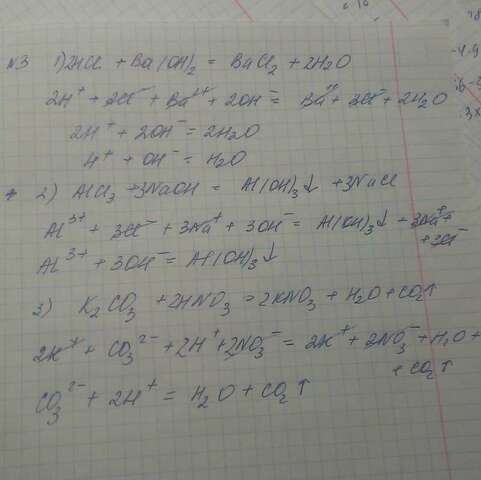 N3 1) 2HCl + Ba(OH)₂ = BaCl₂ + 2H₂O
2H⁺ + 2Cl⁻ + Ba²⁺ + 2OH⁻ = Ba²⁺ + 2Cl⁻ + 2H₂O
2H⁺ + 2OH⁻ = 2H₂O
H⁺ + OH⁻ = H₂O
2) AlCl₃ + 3NaOH = Al(OH)₃↓ + 3NaCl
Al³⁺ + 3Cl⁻ + 3Na⁺ + 3OH⁻ = Al(OH)₃↓ + 3Na⁺ +
+ 3Cl⁻
Al³⁺ + 3OH⁻ = Al(OH)₃↓
3) K₂CO₃ + 2HNO₃ = 2KNO₃ + H₂O + CO₂↑
2K⁺ + CO₃²⁻ + 2H⁺ + 2NO₃⁻ = 2K⁺ + 2NO₃⁻ + H₂O +
+ CO₂↑
CO₃²⁻ + 2H⁺ = H₂O + CO₂↑